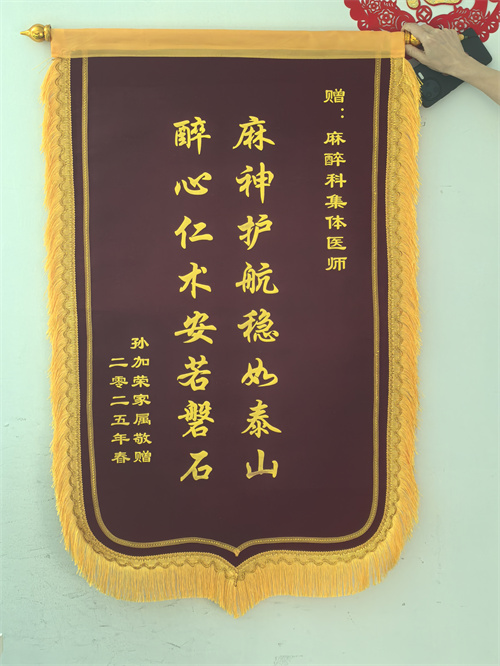 赠：麻醉科集体医师
麻神护航稳如泰山
醉心仁术安若磐石
孙加荣家属敬赠
二零二五年春